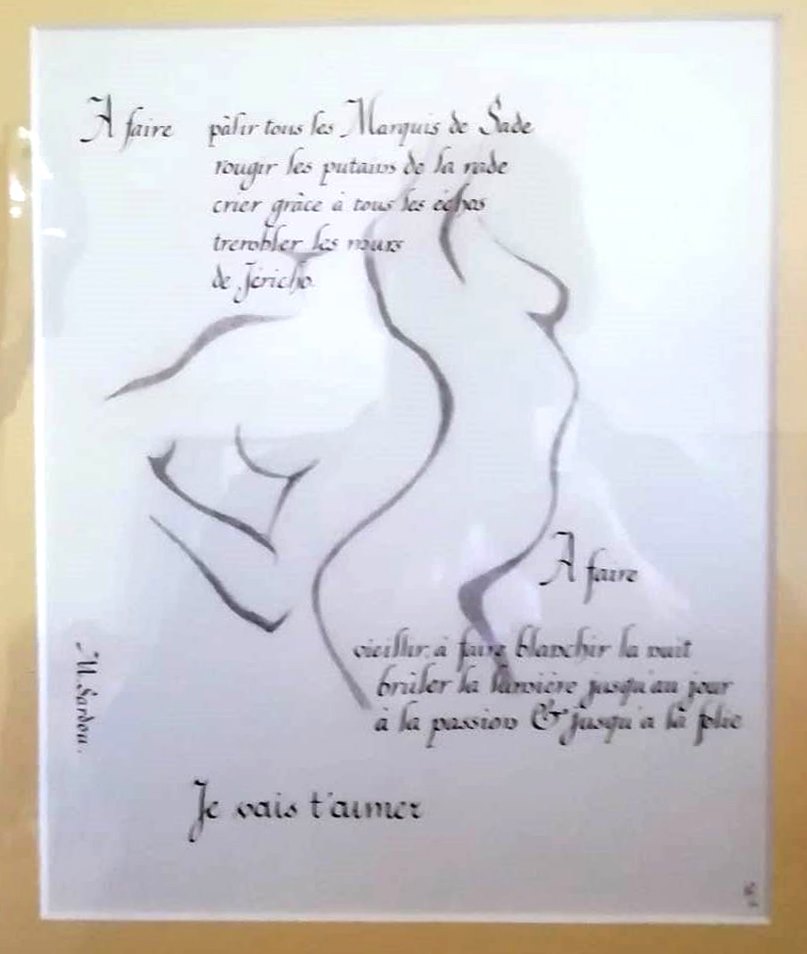 A faire pâlir tous les Marquis de Sade
rougir les putains de la rade
crier grâce à tous les échos
trembler les murs
de Jéricho.
A faire
vieillir, à faire blanchir la nuit
brûler la lumière jusqu'au jour
à la passion & jusqu'a la folie
Je vais t'aimer
M. Sardou.